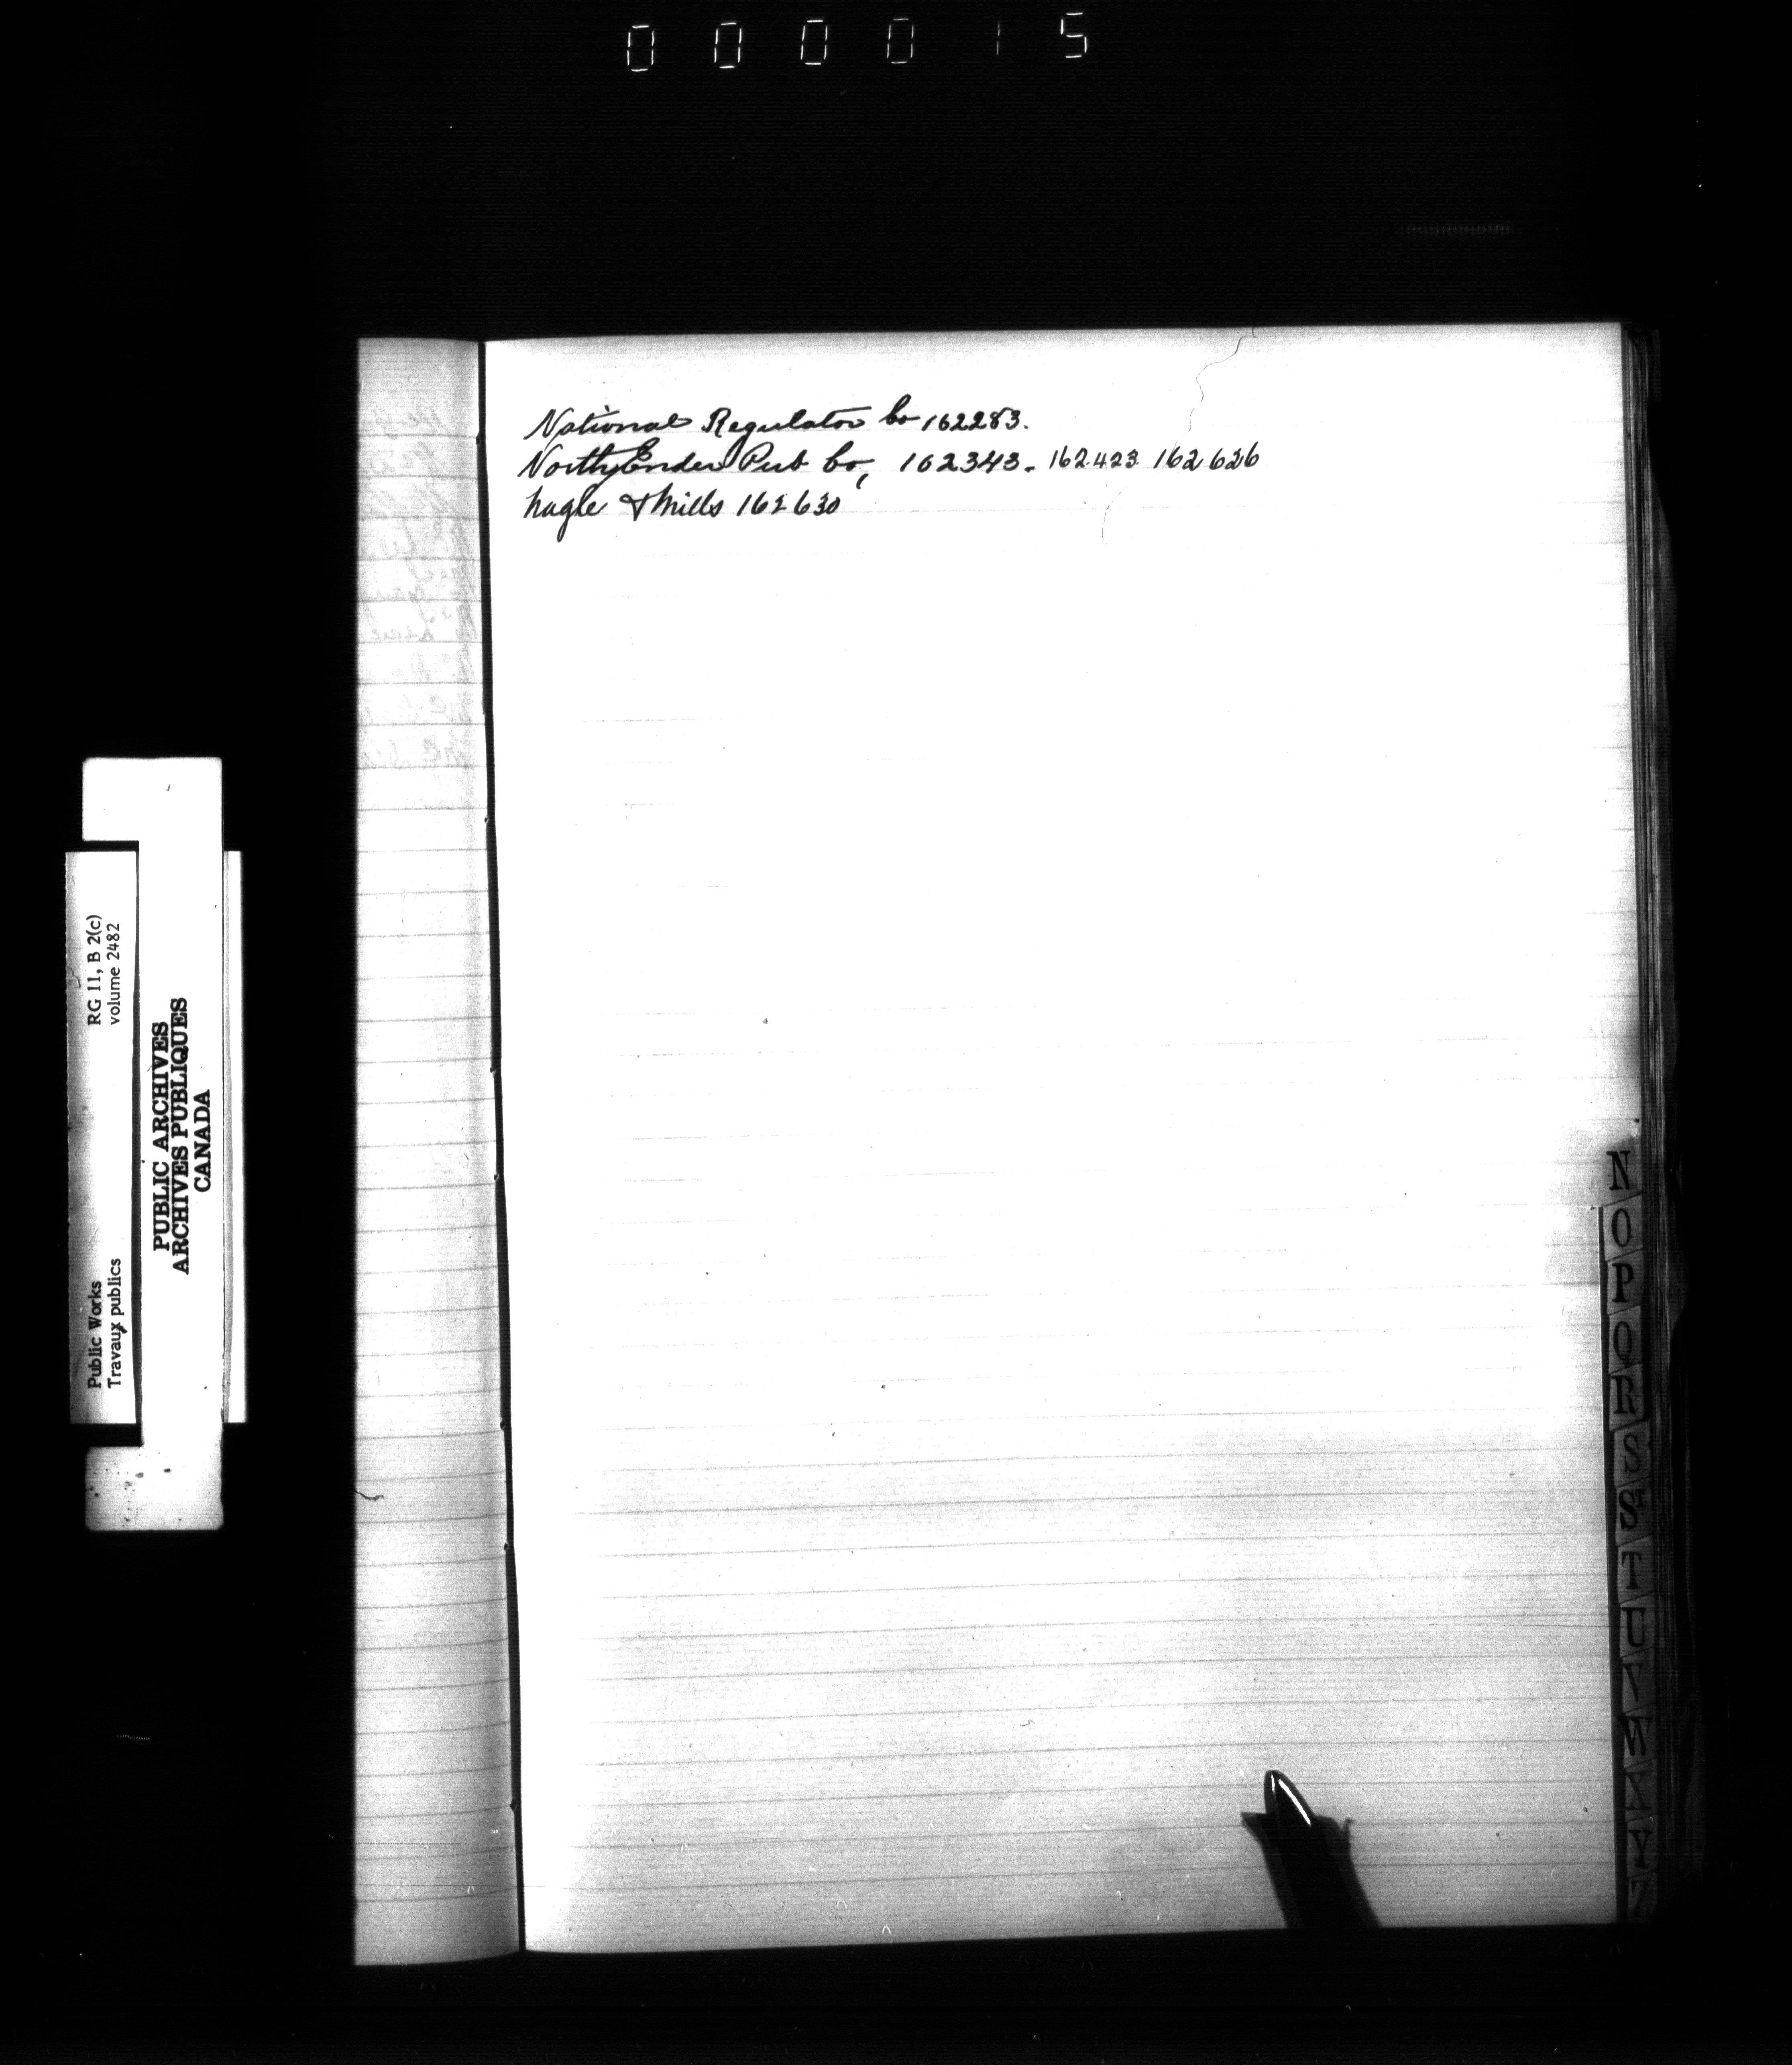 000015
National Regulator Co 162283.
North Ender Pub Co, 162343. 162423 162626
Nagle & Mills 162630
RG 11, B 2(c)
volume 2482
Public Works
Travaux publics
PUBLIC ARCHIVES
ARCHIVES PUBLIQUES
CANADA
N
O
P
Q
R
S
S
T
U
V
W
X
Y
Z